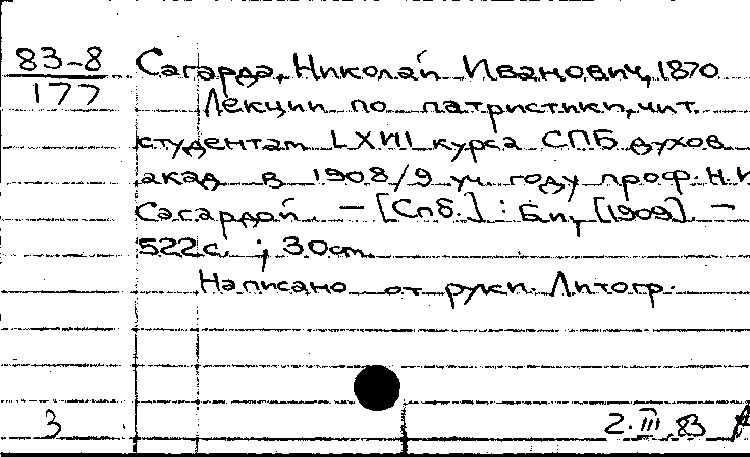 83-8
177
Сагарда, Николай Иванович, 1870
Лекции по патристики, чит.
студентам LXVII курса СПБ духов
акад в 1908/9 уч. году проф. Н.И
Сагардой. — [Спб.] : Б.и., [1909]. —
522с. ; 30см.
Написано от руки. Литогр.
3
2.III.83